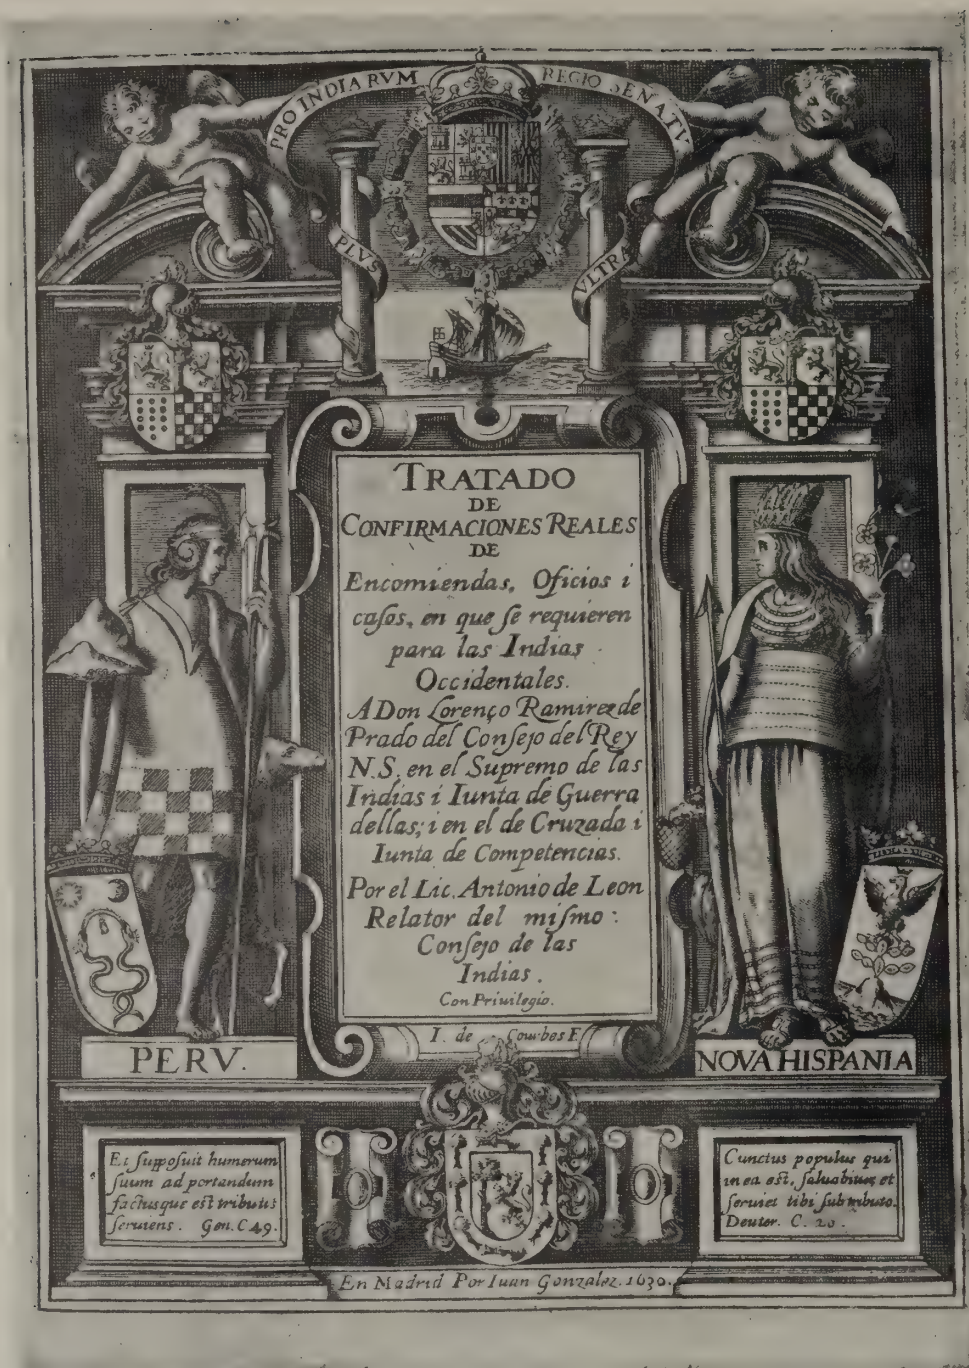 PRO INDIARVM REGIO SENATV
PLVS VLTRA
TRATADO
DE
CONFIRMACIONES REALES
DE
Encomiendas, Oficios i
caſos, en que ſe requieren
para las Indias
Occidentales.
A Don Lorenço Ramirez de
Prado del Conſejo del Rey
N.S. en el Supremo de las
Indias i Iunta de Guerra
dellas; i en el de Cruzada i
Iunta de Competencias.
Por el Lic. Antonio de Leon
Relator del miſmo
Conſejo de las
Indias.
Con Priuilegio.
I. de Courbes F.
PERV.
NOVA HISPANIA
Et ſuppoſuit humerum
ſuum ad portandum
factusque est tributis
ſeruiens. Gen. C 49.
Cunctus populus qui
in ea est, ſaluabitur, et
ſeruiet tibi ſub tributo.
Deuter. C. 20.
En Madrid Por Iuan Gonzalez. 1630.